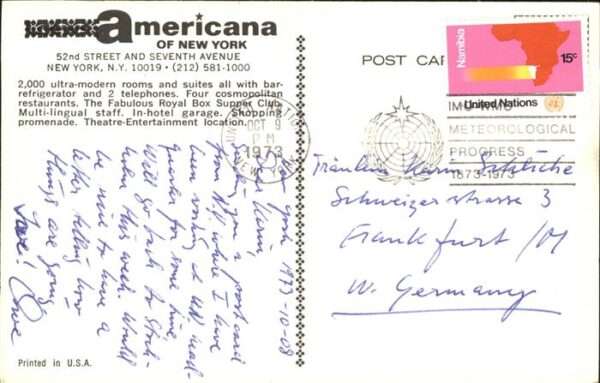 americana
OF NEW YORK
52nd STREET AND SEVENTH AVENUE
NEW YORK, N.Y. 10019 • (212) 581-1000
2,000 ultra-modern rooms and suites all with bar-
refrigerator and 2 telephones. Four cosmopolitan
restaurants. The Fabulous Royal Box Supper Club.
Multi-lingual staff. In-hotel garage. Shopping
promenade. Theatre-Entertainment location.
POST CAR
Namibia
15c
United Nations
OCT 9
PM
1973
NEW YORK
IMO/WMO
METEOROLOGICAL
PROGRESS
1873-1973
New York 1973-10-08
Dear Karin,
you a postcard
from NY where I have
been working at UN head-
quarter for some time
Will go back to Stock-
holm this week. Would
be nice to have a
letter telling how
things are going
Love!
Fräulein Karin
Schweizerstrasse 3
Frankfurt /M
W. Germany
Printed in U.S.A.